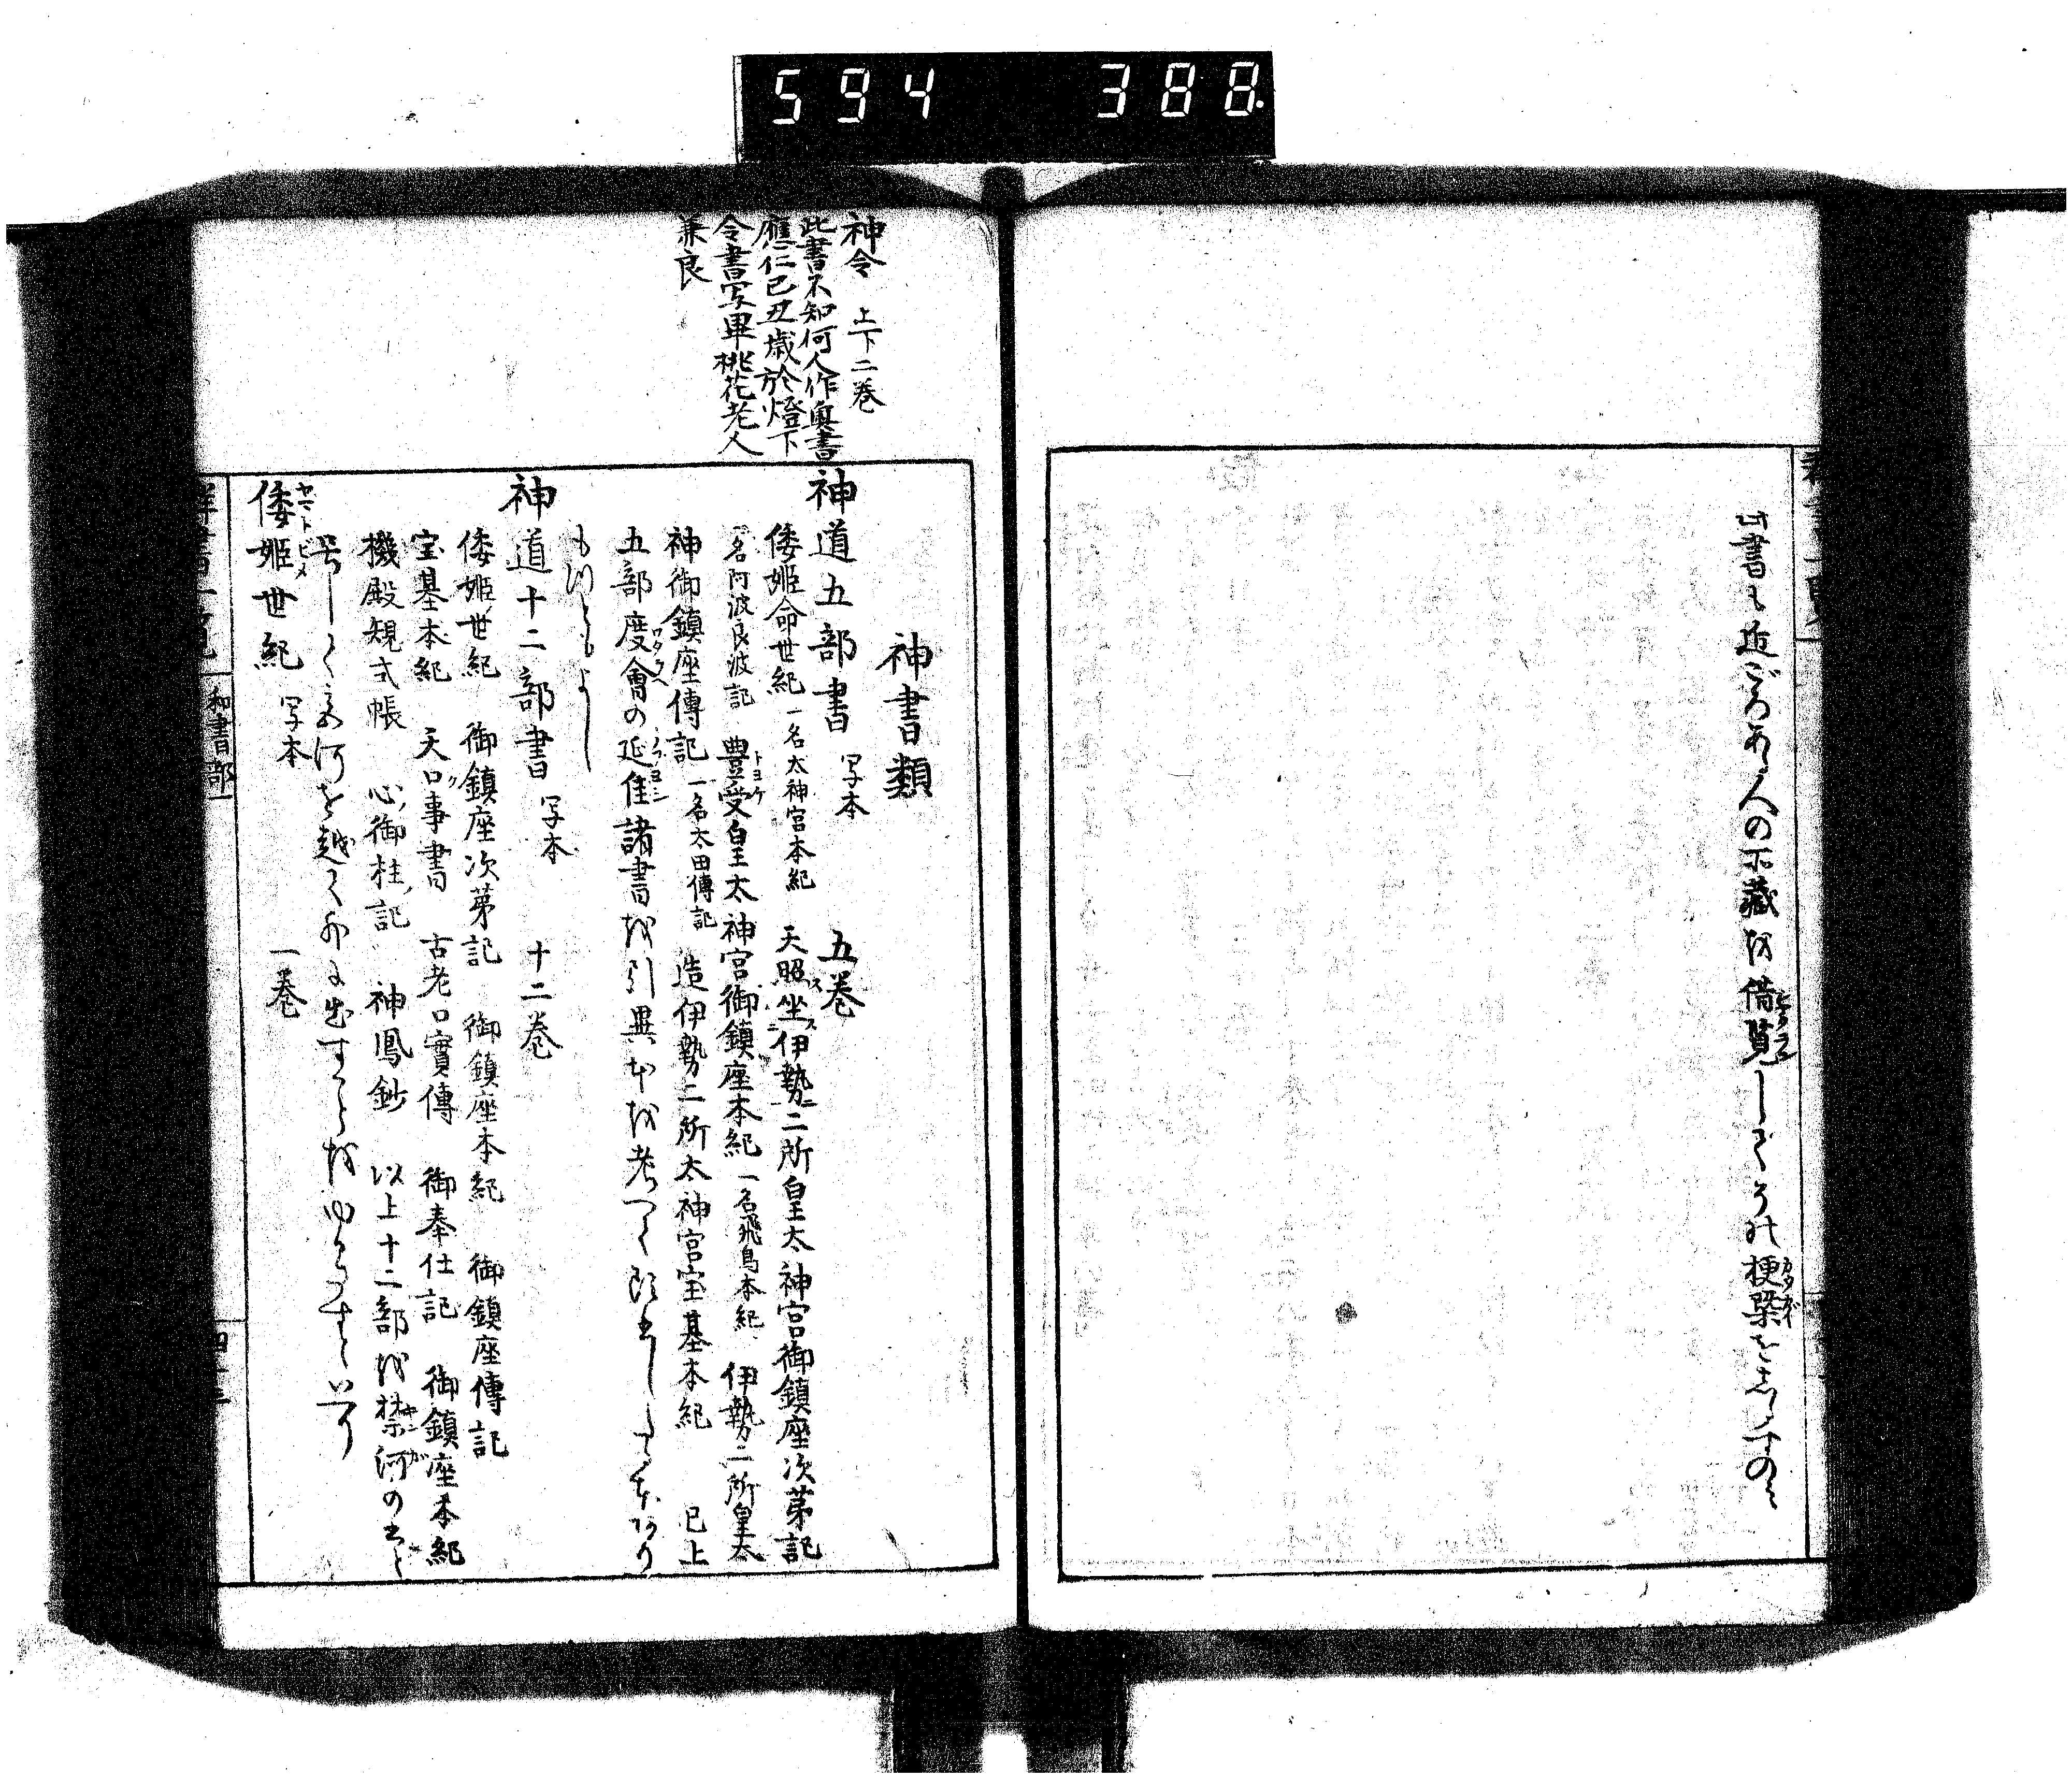 594 388
此書も近ごろある人の所蔵を借覧してその梗槩をしるすのミ
神令 上下二巻
此書不知何人作奥書
應仁己丑歳於燈下
令書写畢桃花老人
兼良
神書類
神道五部書 写本 五巻
倭姫命世紀 一名太神宮本紀 天照坐伊勢二所皇太神宮御鎮座次第記
一名阿波良波記 豊受皇太神宮御鎮座本紀 一名飛鳥本紀 伊勢二所皇太
神御鎮座傳記 一名太田傳記 造伊勢二所太神宮宝基本紀 已上
五部度會の延佳諸書を引異本を考へて
もつともよし
神道十二部書 写本 十二巻
倭姫世紀 御鎮座次第記 御鎮座本紀 御鎮座傳記
宝基本紀 天口事書 古老口實傳 御奉仕記 御鎮座本紀
機殿規式帳 心御柱記 神鳳鈔 以上十二部を禁河の書と
号して宮河を越て外に出すことをゆるさずといへり
倭姫世紀 写本 一巻
ヤマトビメ
群書一覧 和書部